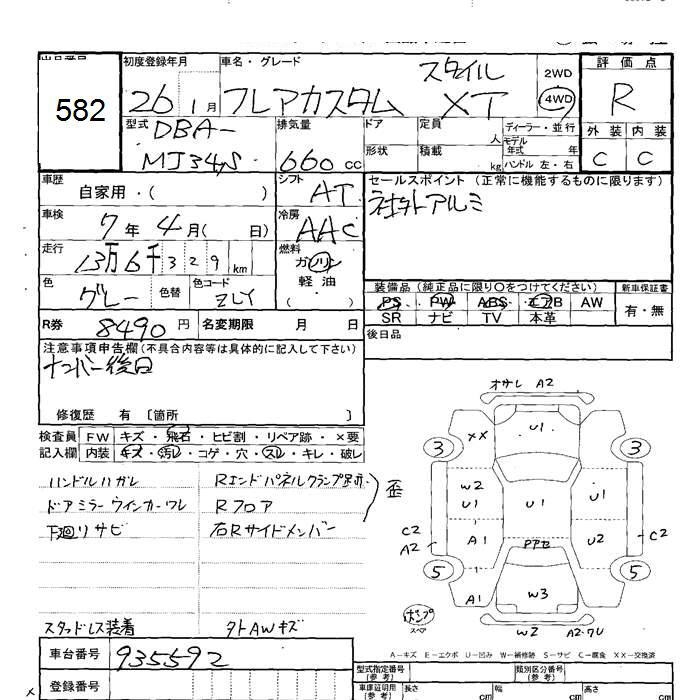 出品番号
582
初度登録年月
26 1月
車名・グレード
スタイル
フレアカスタム XT
2WD
4WD
評価点
R
外装 内装
C C
型式
DBA-
MJ34S
排気量
660 cc
ドア
形状
定員
人
積載
kg
ディーラー・並行
モデル年式 年
ハンドル 左・右
車歴
自家用・( )
シフト
AT
セールスポイント(正常に機能するものに限ります)
社外アルミ
車検
7年 4月( 日)
冷房
AAC
走行
13万6千329km
燃料
ガソリン
軽油
( )
色
グレー
色替
色コード
ZLY
装備品(純正品に限り〇をつけてください)
新車保証書
PS PW ABS エアB AW
SR ナビ TV 本革
有・無
R券
8490円
名変期限 月 日
後日品
注意事項申告欄(不具合内容等は具体的に記入して下さい)
ナンバー後日
修復歴 有 〔箇所 〕
検査員記入欄
FW キズ・飛石・ヒビ割・リペア跡・×要
内装 キズ・汚レ・コゲ・穴・スレ・キレ・破レ
ハンドルハガレ
ドアミラーウインカーワレ
下廻リサビ
Rエンドパネルクランプ
Rフロア
右Rサイドメンバー
歪
スタッドレス装着
タトAWキズ
車台番号
935592
登録番号
オサレ A2
U1
××
3
3
W2
U1
U1
U1
C2
A2
A1
U2
C2
Pアセ
5
5
A1
W3
スペア
W2
A2・ワレ
A-キズ E-エクボ U-凹み W-補修跡 S-サビ C-腐食 XX-交換済
型式指定番号
(参考)
類別区分番号
(参考)
車庫証明用
(参考)
長さ
cm
幅
cm
高さ
cm